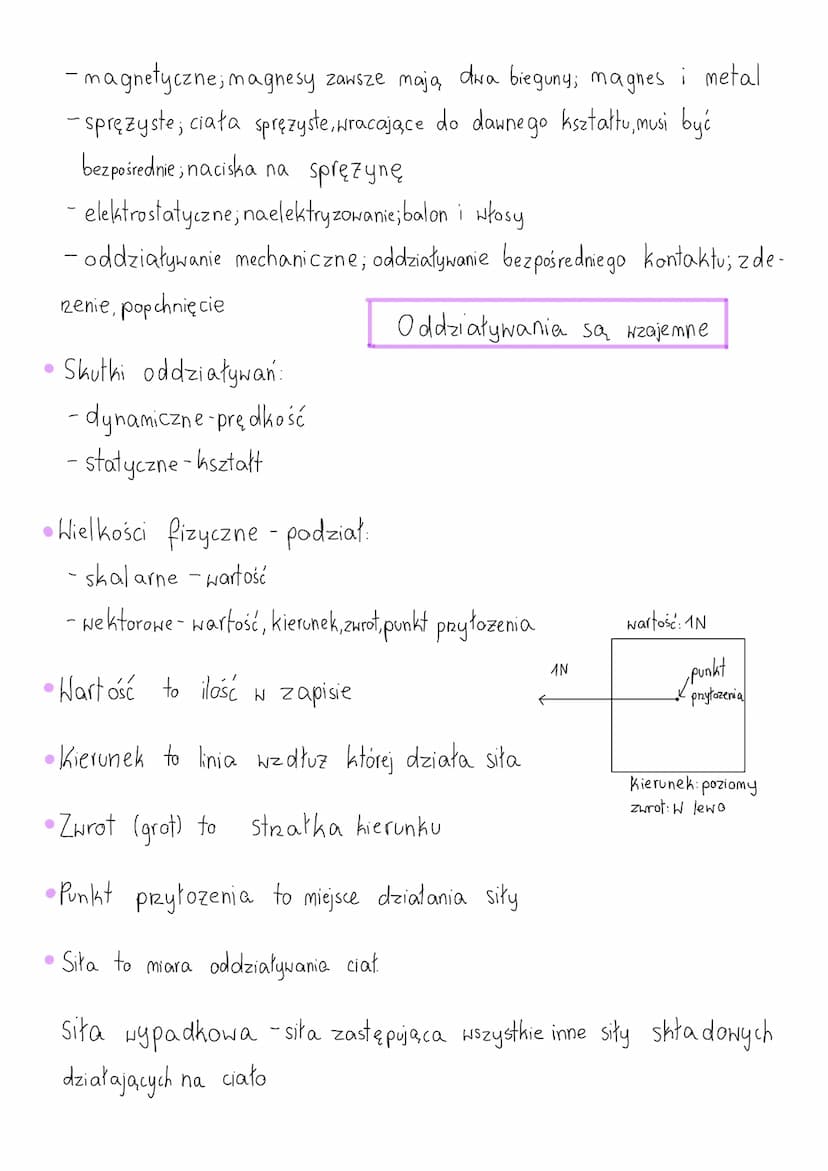 - magnetyczne; magnesy zawsze mają dwa bieguny; magnes i metal
- sprężyste; ciała sprężyste, wracające do dawnego kształtu, musi być
bezpośrednie; naciska na sprężynę
- elektrostatyczne; naelektryzowanie; balon i włosy
- oddziaływanie mechaniczne; oddziaływanie bezpośredniego kontaktu; zde-
rzenie, popchnięcie
Oddziaływania są wzajemne
• Skutki oddziaływań:
- dynamiczne - prędkość
- statyczne - kształt
• Wielkości fizyczne - podział:
- skalarne - wartość
- wektorowe - wartość, kierunek, zwrot, punkt przyłożenia
wartość: 1N
1N
punkt
przyłożenia
kierunek: poziomy
zwrot: w lewo
• Wartość to ilość w zapisie
• Kierunek to linia wzdłuż której działa siła
• Zwrot (grot) to strzałka kierunku
• Punkt przyłożenia to miejsce działania siły
• Siła to miara oddziaływania ciał.
Siła wypadkowa - siła zastępująca wszystkie inne siły składowych
działających na ciało